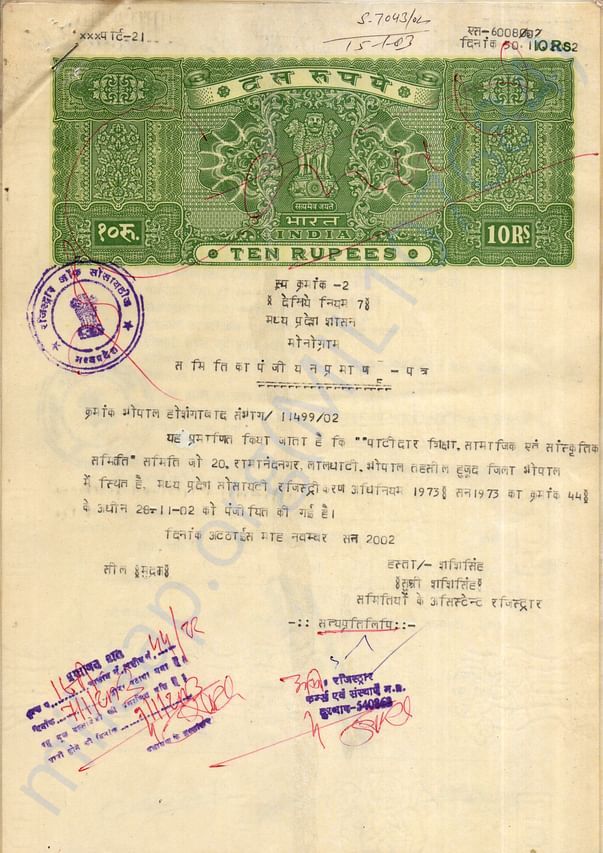 S-7043/02
15-1-03
xxxपार्ट-21
एस-6008
दिनांक 30.11
10 RS
2
दस रुपये
सत्यमेव जयते
भारत
INDIA
१०रु.
10RS
TEN RUPEES
रूप क्रमांक -2
§ देखिये नियम 7§
मध्य प्रदेश शासन
मोनोग्राम
समिति का पंजीयन प्रमाण - पत्र
रजिस्ट्रार ऑफ सोसायटीज
मध्यप्रदेश
क्रमांक भोपाल होशंगाबाद संभाग/ 11499/02
यह प्रमाणित किया जाता है कि ""पाटीदार शिक्षा, सामाजिक एवं सांस्कृतिक
समिति" समिति जो 20, रामानंदनगर, लालघाटी, भोपाल तहसील हुजूर जिला भोपाल
में स्थित है, मध्य प्रदेश सोसायटी रजिस्ट्रीकरण अधिनियम 1973§ सन1973 का क्रमांक 44§
के अधीन 28-11-02 को पंजीयित की गई है।
दिनांक अट्ठाईस माह नवम्बर सन 2002
सील §मुद्रा§
हस्ता/- शशिसिंह
§सुश्री शशिसिंह§
समितियों के असिस्टेन्ट रजिस्ट्रार
-:: सत्यप्रतिलिपि ::-
रजिस्ट्रार
फर्म्स एवं संस्थाएं म.प्र.